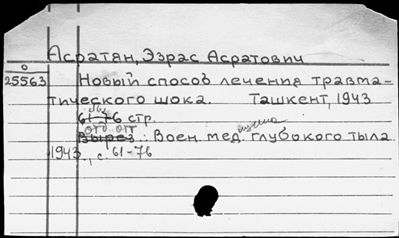 Асратян, Эзрас Асратович
о
25563 Новый способ лечения травма-
тического шока. Ташкент, 1943
61-76 стр.
отд. отт
Вырез.: Воен. мед. глубокого тыла
1943., с. 61-76